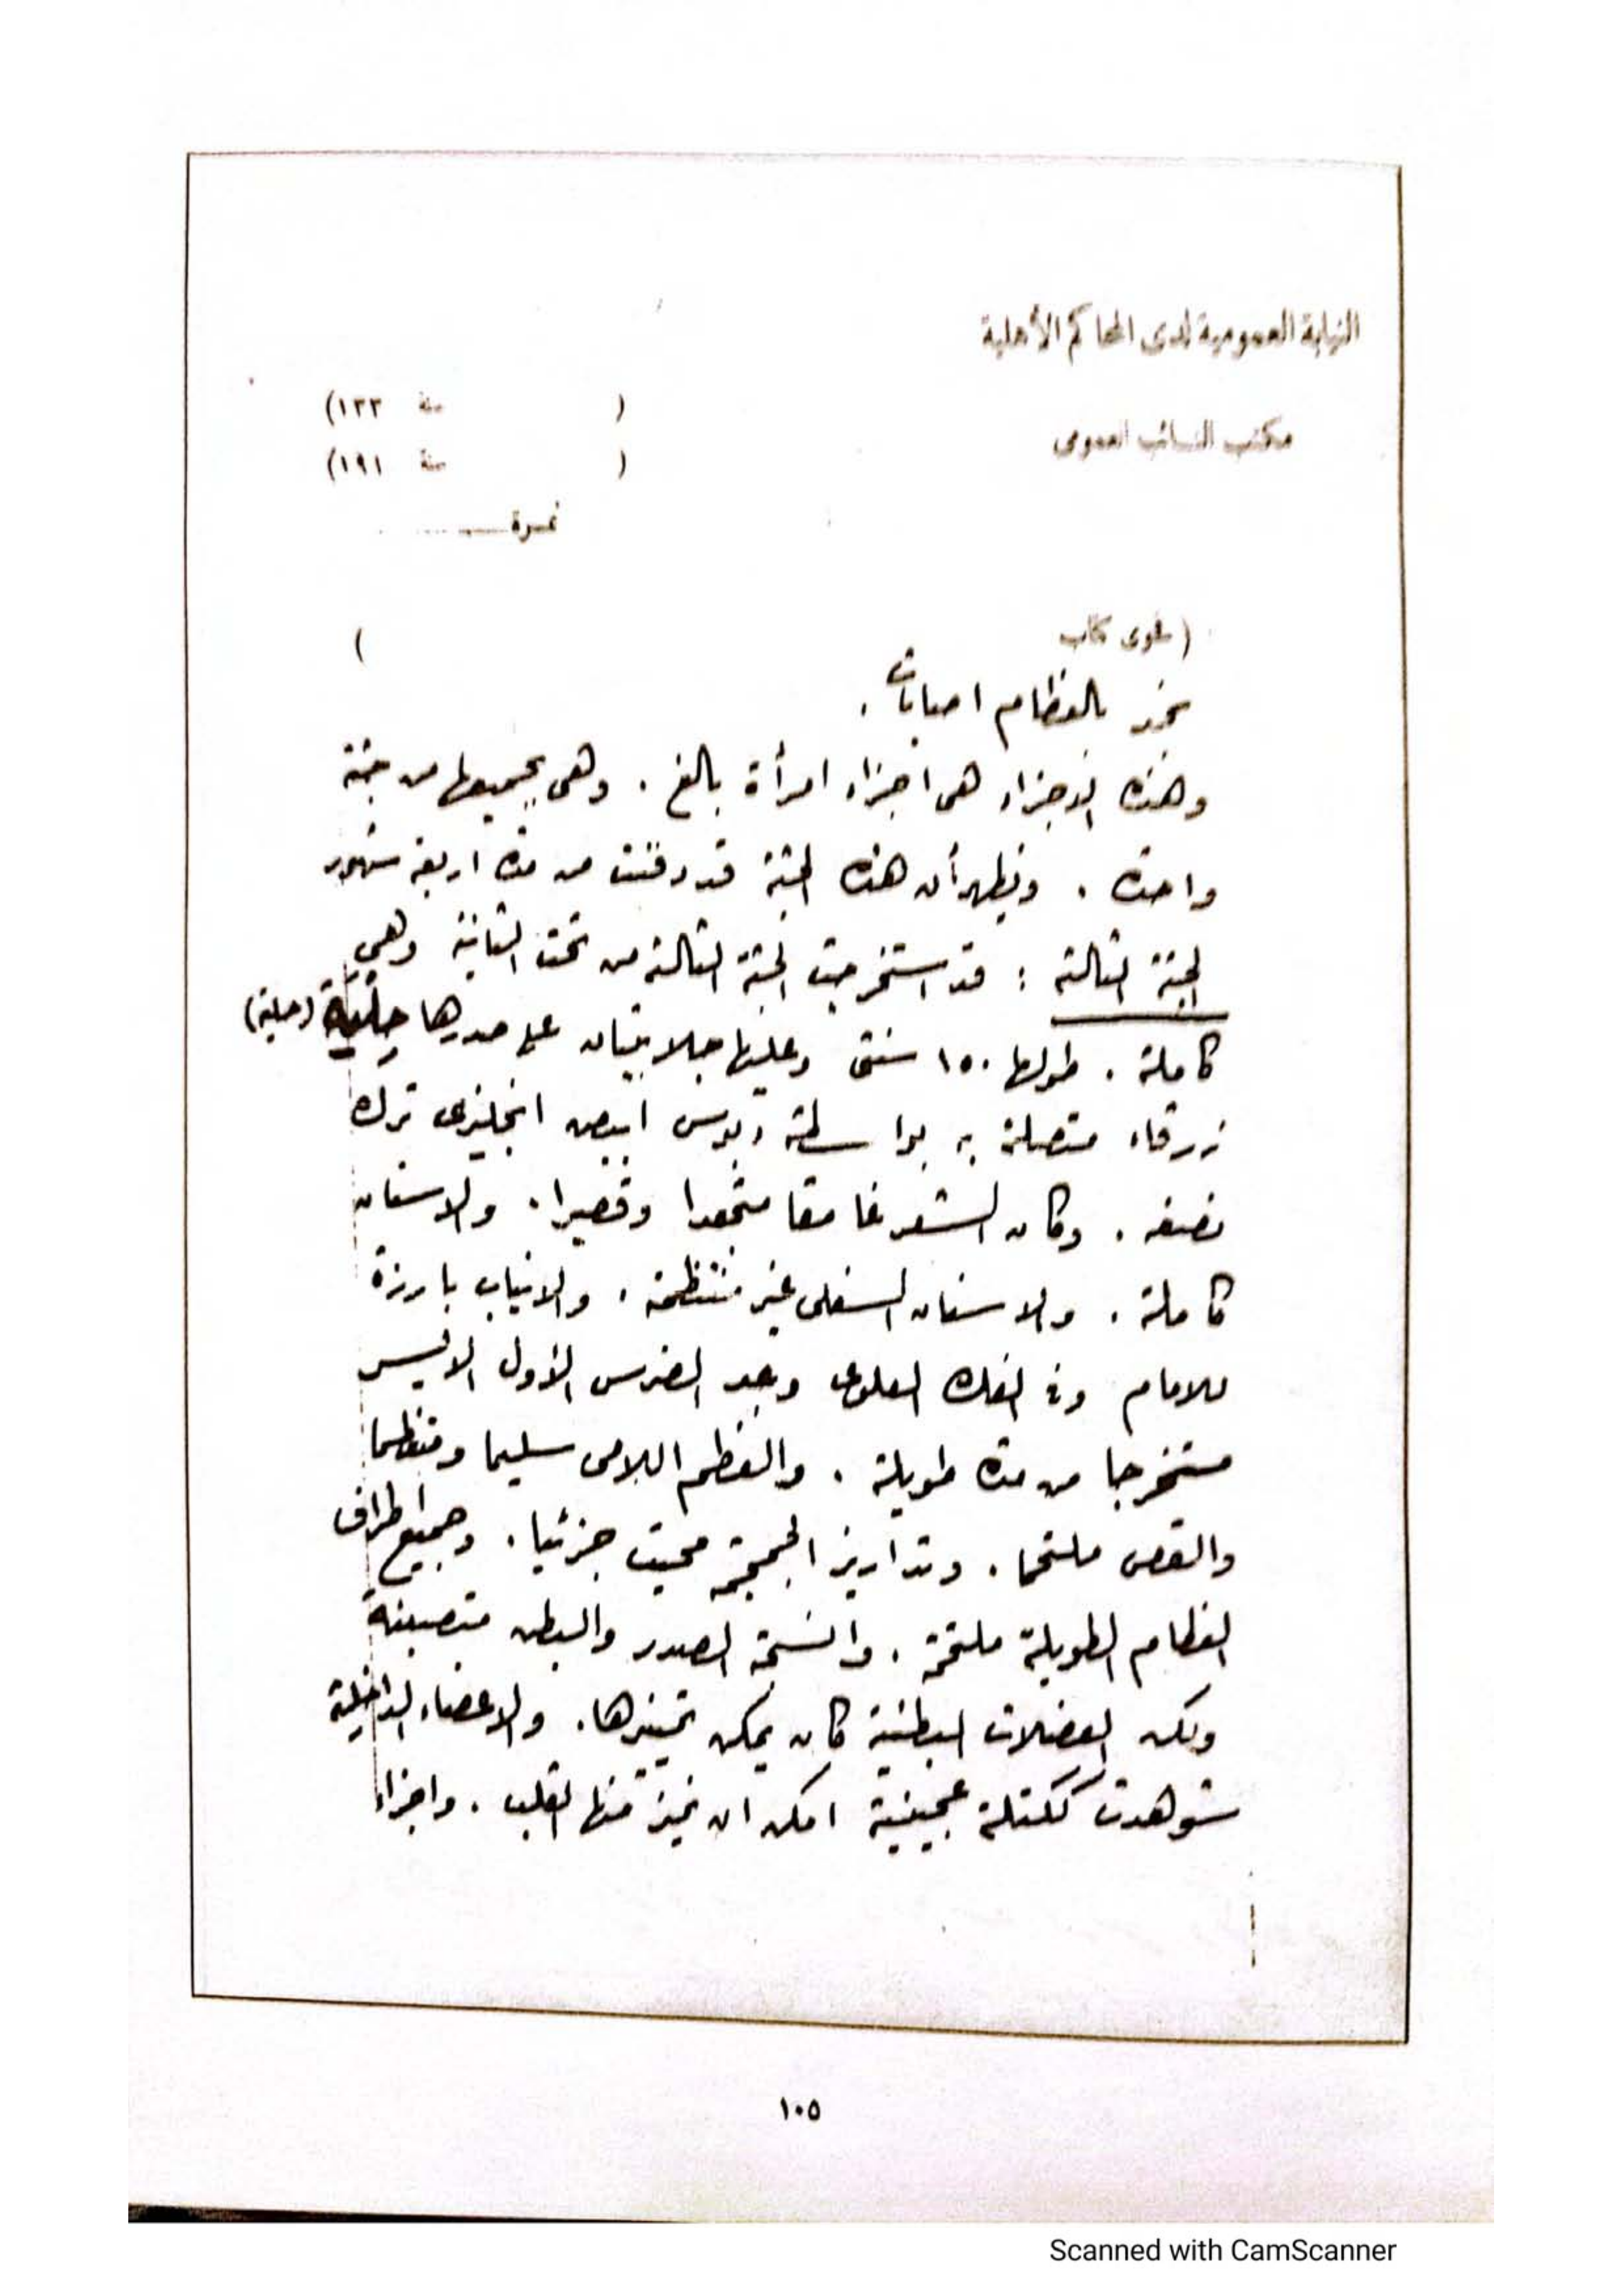 النيابة العمومية لدى المحاكم الأهلية
( سنة ١٣٣)
مكتب النائب العمومى
( سنة ١٩١)
نمرة
( فحوى كتاب )
نجد بالعظام اصابات .
وهذه الاجزاء هى اجزاء امرأة بالغ . وهى بجميعها من جثة
واحدة . ويظهر أن هذه الجثة قد دفنت من مدة اربعة شهور
الجثة الثالثة : قد استخرجت الجثة الثالثة من تحت الثانية وهى
كاملة . طولها ١٥٠ سنتى وعليها جلابيتان على صدرها حِلْيَة (حلية)
زرقاء متصلة به بواسطة دبوس ابيض انجليزى ترك
نصفه . وكان الشعر غامقا متجعدا وقصيرا . والاسنان
كاملة . والاسنان السفلى غير منتظمة . والانياب بارزة
للامام وفى الفك العلوى وجد الضرس الأول الايسر
مستخرجا من مدة طويلة . والعظم اللامى سليما ومنتظما
والقص ملتحما . وتداريز الجمجمة محيت جزئيا . وجميع اطراف
العظام الطويلة ملتحمة . وانسجة الصدر والبطن متصبنة
ولكن العضلات البطنية كان يمكن تمييزها . والاعضاء الداخلية
شوهدت ككتلة عجينية امكن ان نميز منها القلب . واجزاء
١٠٥
Scanned with CamScanner